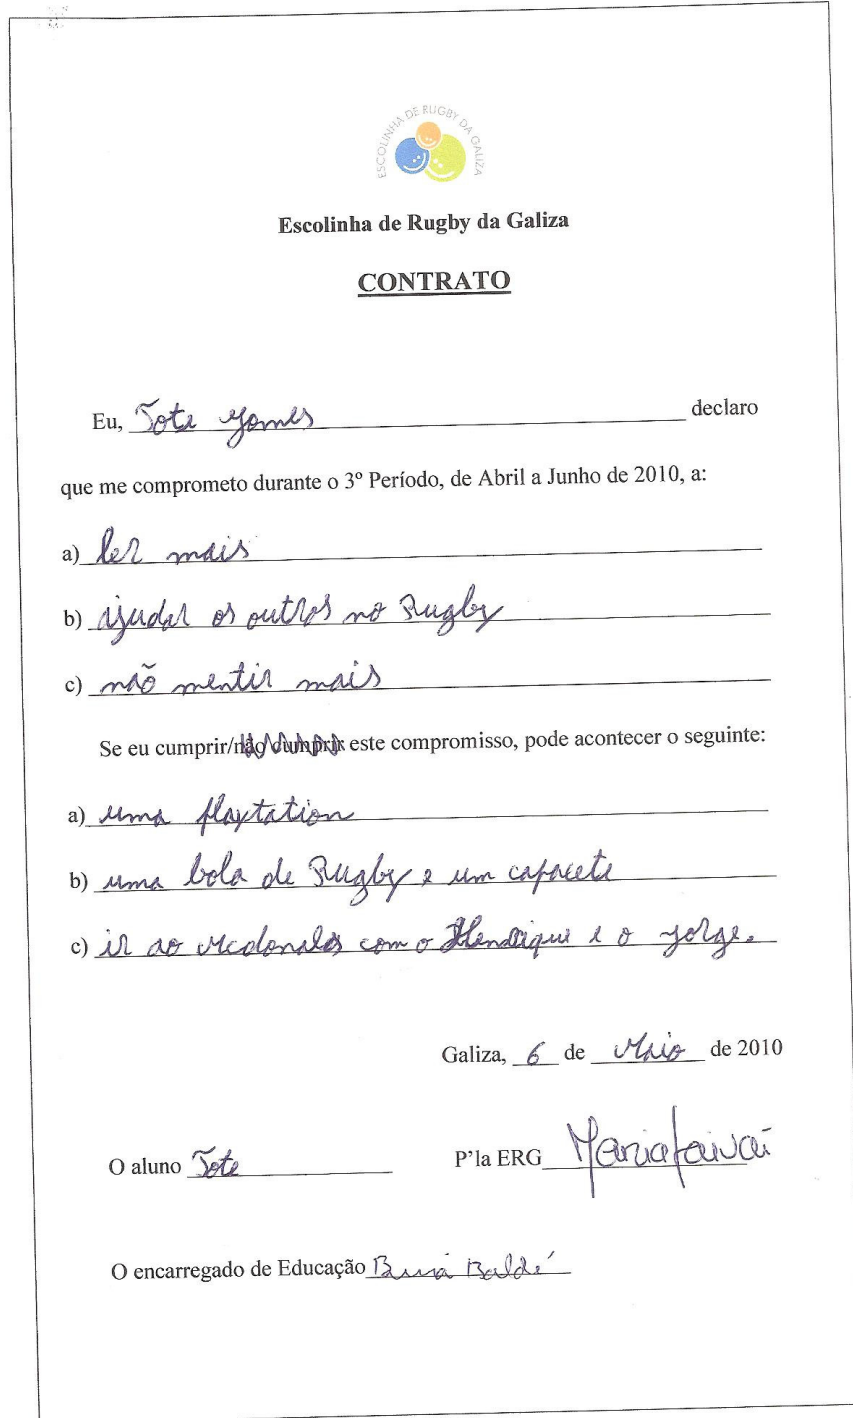 ESCOLINHA DE RUGBY DA GALIZA
Escolinha de Rugby da Galiza
CONTRATO
Eu, Tote Gomes declaro
que me comprometo durante o 3º Período, de Abril a Junho de 2010, a:
a) ler mais
b) ajudar os outros no Rugby
c) não mentir mais
Se eu cumprir/não cumprir este compromisso, pode acontecer o seguinte:
a) uma playtation
b) uma bola de Rugby e um capacete
c) ir ao Mcdonalds com o Henrique e o Jorge.
Galiza, 6 de Maio de 2010
O aluno Tote P'la ERG Maria
O encarregado de Educação Baldé